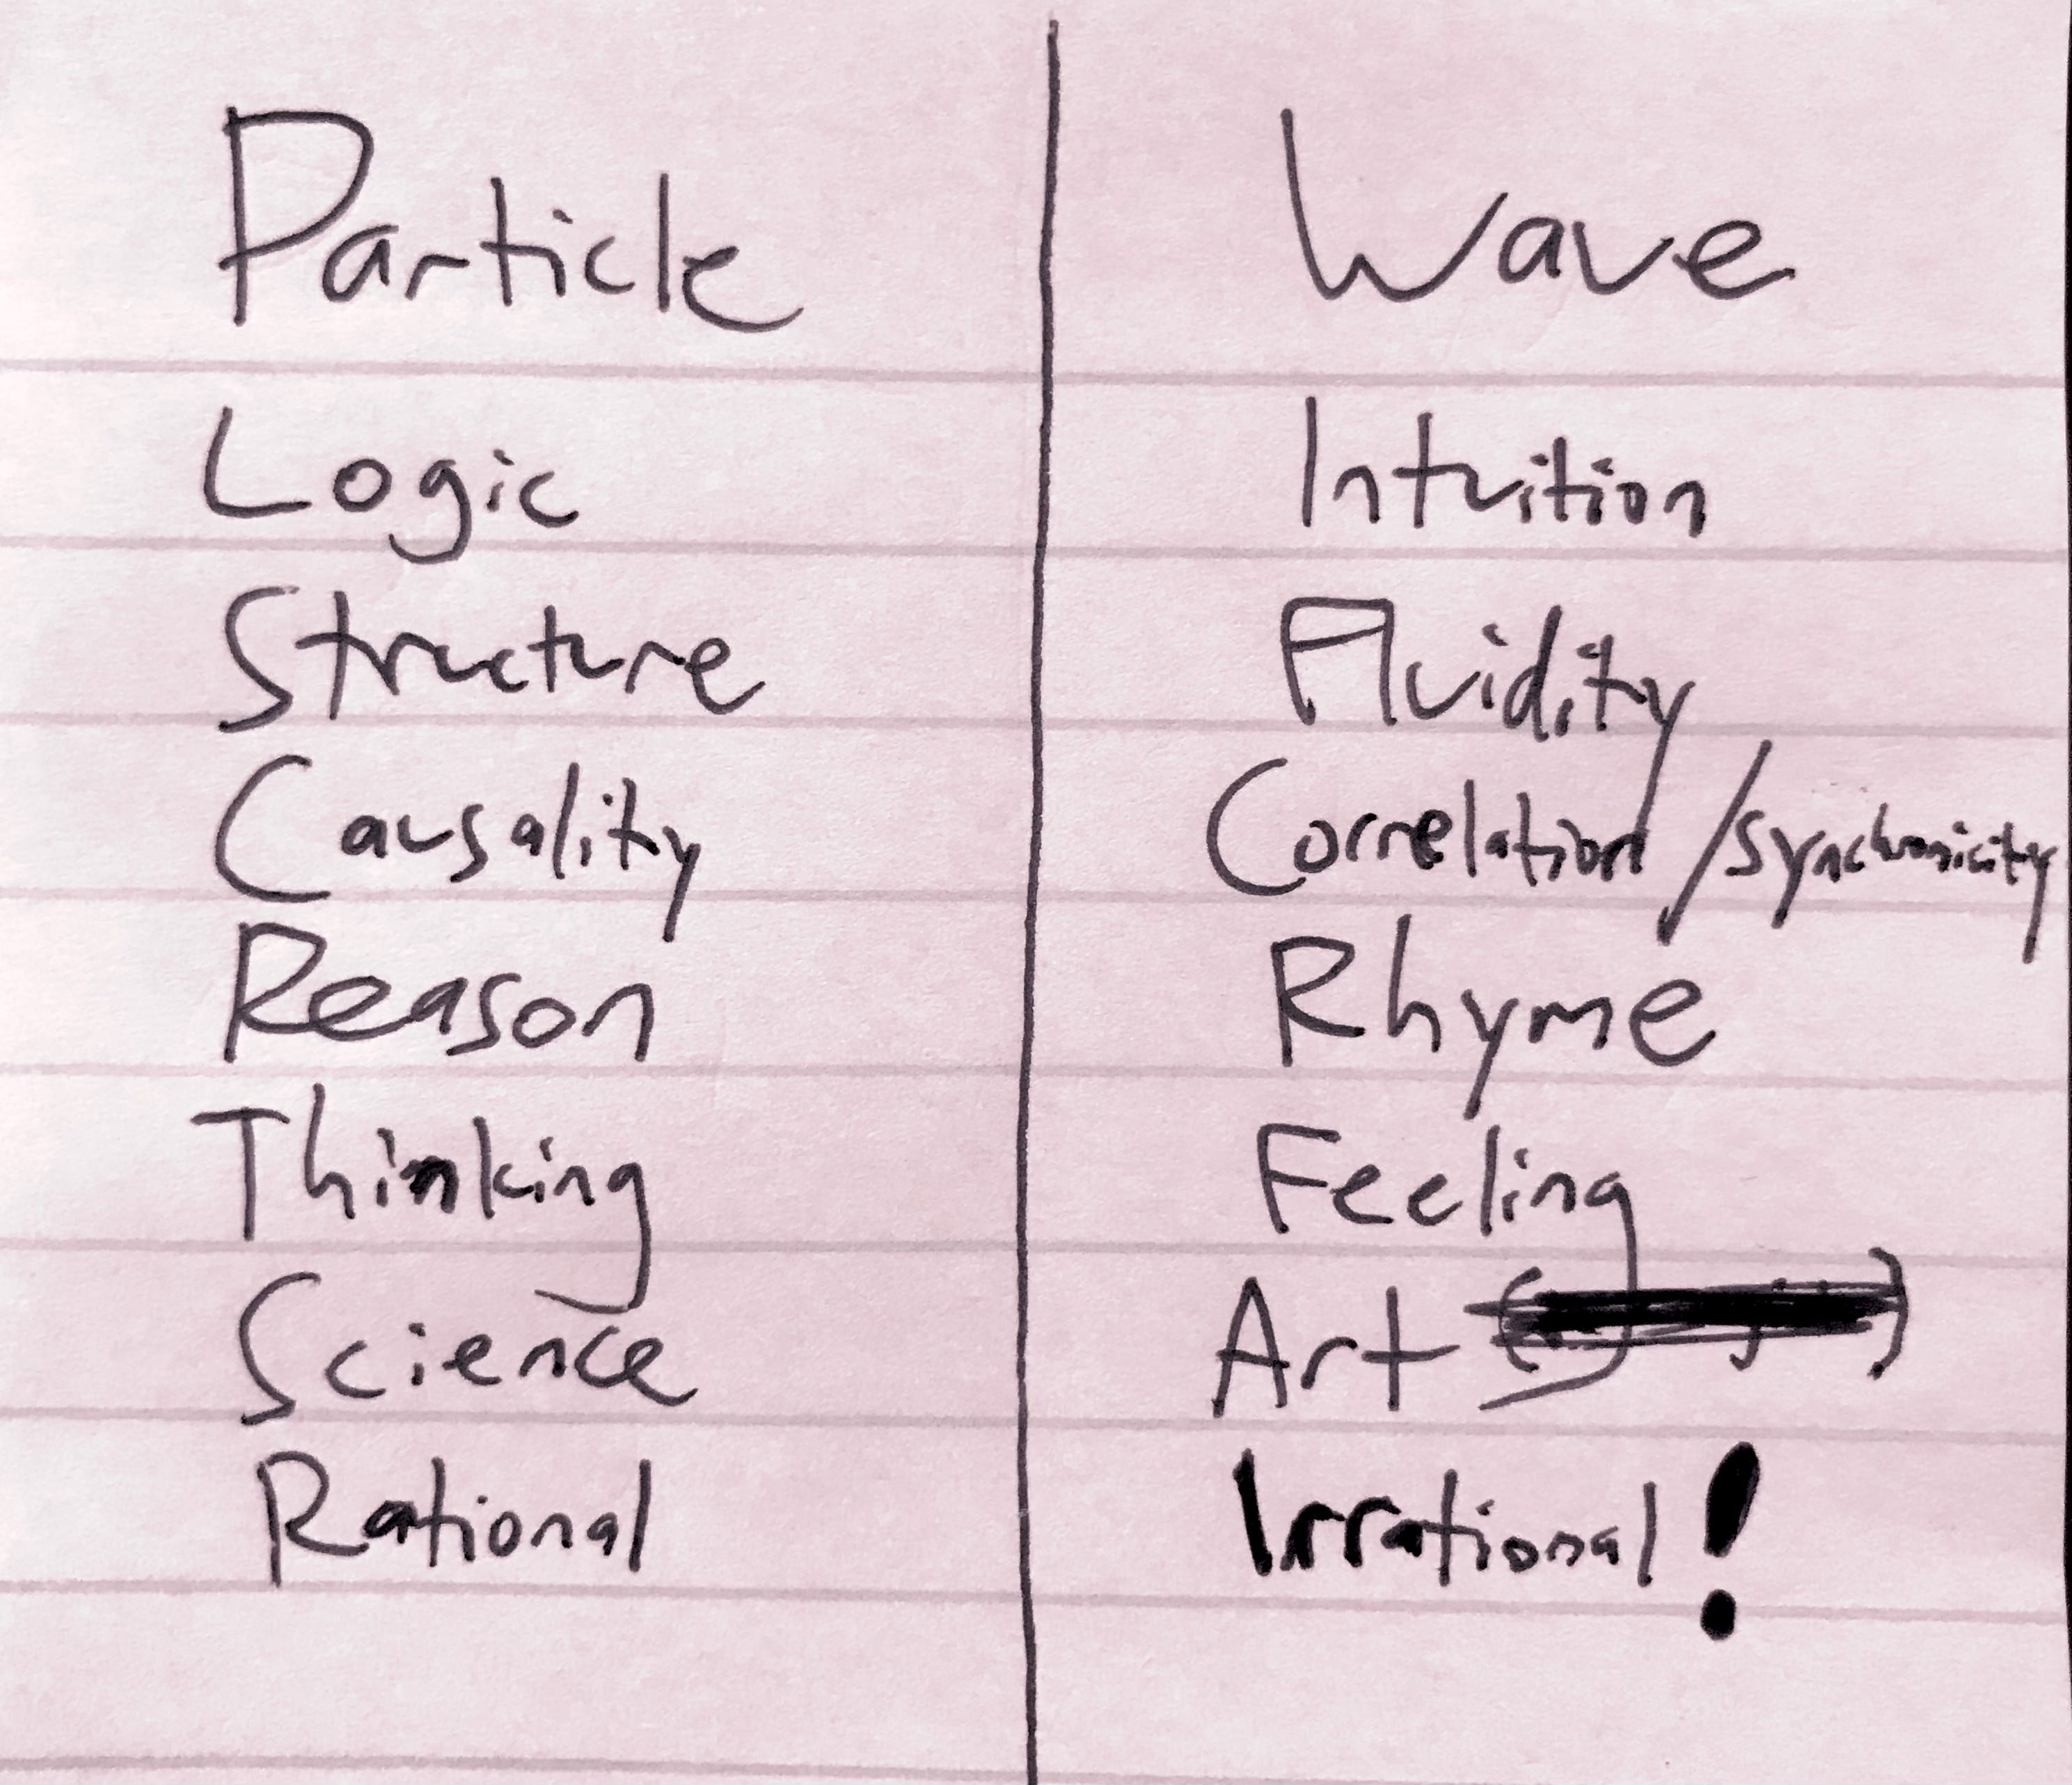 Particle
Wave
Logic
Intuition
Structure
Fluidity
Causality
Correlation / synchronicity
Reason
Rhyme
Thinking
Feeling
Science
Art
Rational
Irrational!